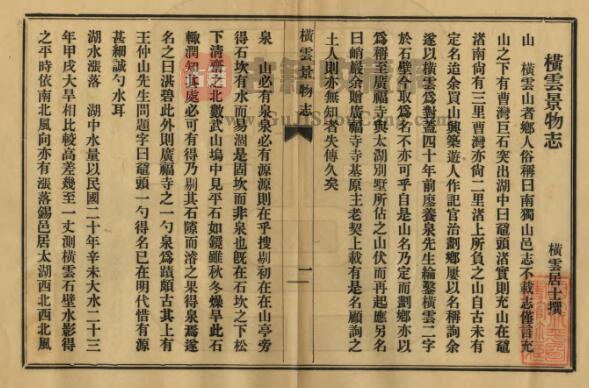 橫雲景物志
橫雲居士撰
山　橫雲山者鄉人俗稱曰南獨山邑志不載志僅言充
山之下有曹灣巨石突出湖中曰黿頭渚實則充山在黿
渚南尙有二里曹灣亦尙一二里渚上所負之山自古未有
定名迨余買山興築遊人作記官治劃鄉屢以名稱詢余
遂以橫雲爲對蓋四十年前廖養泉先生綸鑿橫雲二字
於石壁今取爲名不亦可乎自是山名乃定而劃鄉亦以
爲稱至廣福寺與太湖別墅所佔之山伏而再起應另名
曰峭巖余贈廣福寺寺基原主老契上載有是名顧詢之
土人則亦無知者失傳久矣
橫雲景物志
一
泉　山必有泉泉必有源源則在乎搜剔初在在山亭旁
得石坎有水而易涸是固坎而非泉也旣在石坎之下松
下淸齋之北數武山塢中見平石如鏡雖秋冬燥旱此石
輒潤知其處必可有得乃剔其石隙而濬之果得泉焉遂
名之曰洪碧此外則廣福寺之一勺泉爲蹟頗古其上有
王仲山先生問題字曰黿頭一勺得名已在明代惜有源
甚細誠勺水耳
湖水漲落　湖中水量以民國二十年辛未大水二十三
年甲戌大旱相比較高差幾至一丈測橫雲石壁水影得
之平時依南北風向亦有漲落錫邑居太湖西北西北風
www.GuJiShuCang.Com